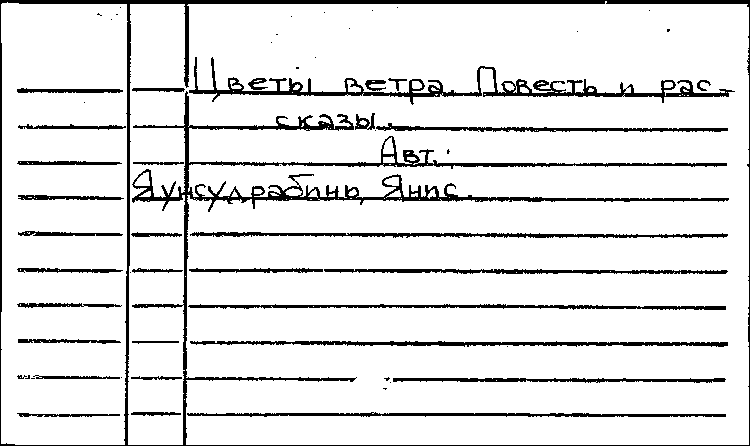 Цветы ветра. Повесть и рас-
сказы.
Авт.:
Яунсудрабинь, Янис.